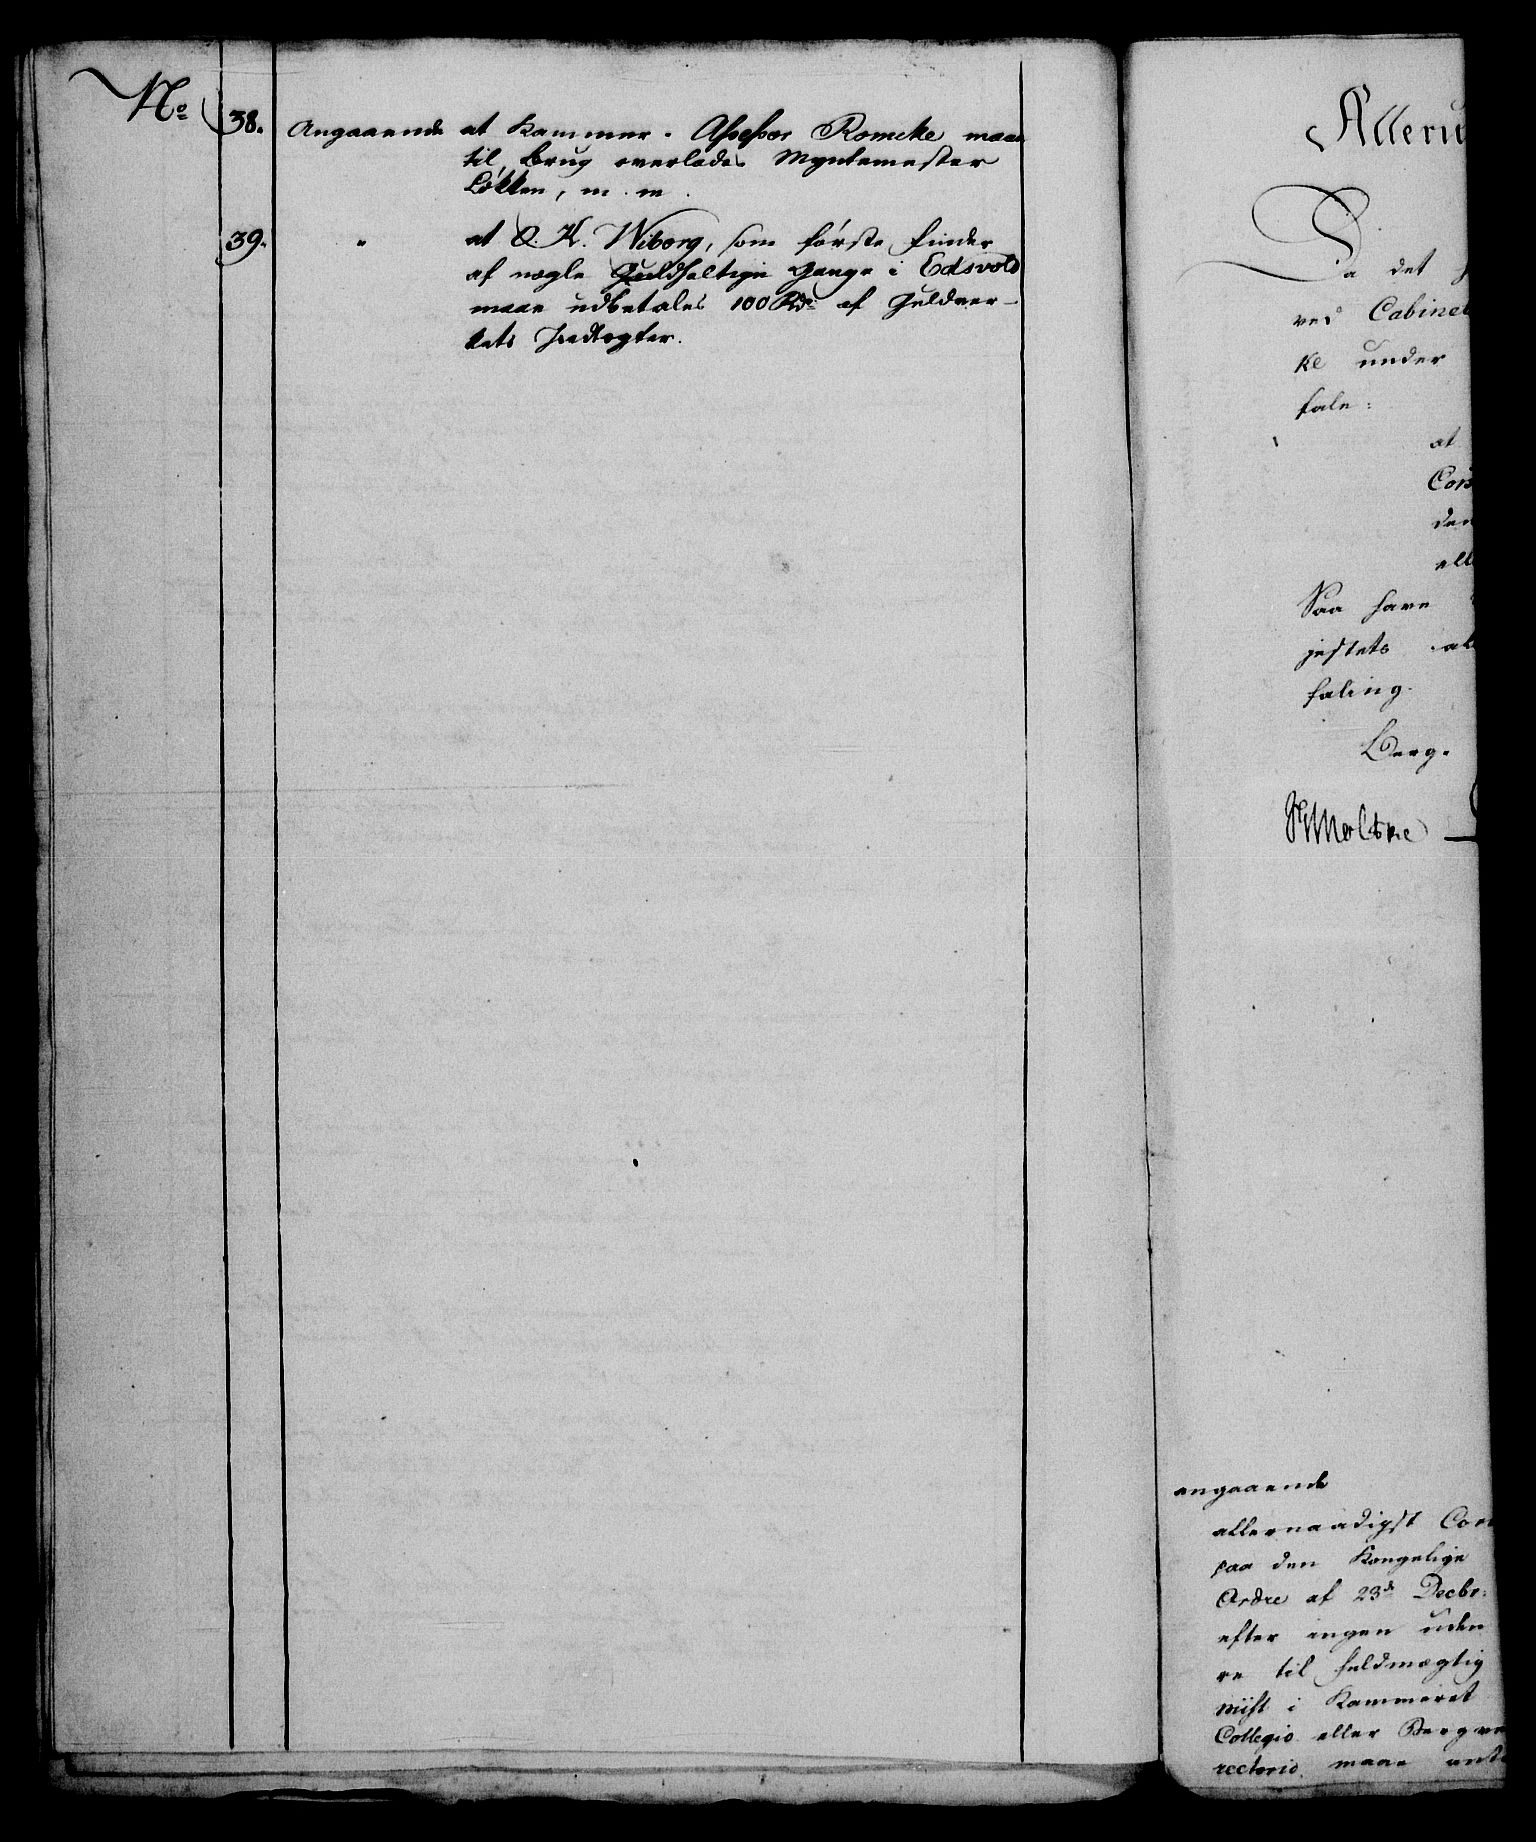 No
38. Angaaende at Kammer-Assessor Romcke maae
til Brug overlades Myntemester
Løkken, m. m.
39. " at O. K. Wiborg, som første finder
af nogle Guldholtige Gange i Edsvold
maae udbetales 100 Rdr af Guldver-
kets Indtægter.
Alleru
Da det
ved Cabinet
ke under
fale:
at
Con
den
elle
Saa have
jestets al
faling.
Berg-
Moltke
angaaende
allernaadigst Con
paa den Kongelige
Ordre af 23de Decbr:
efter ingen uden
re til fuldmægtig
niist i Kammeret
Collegio eller Bergve
rectorio maae ans